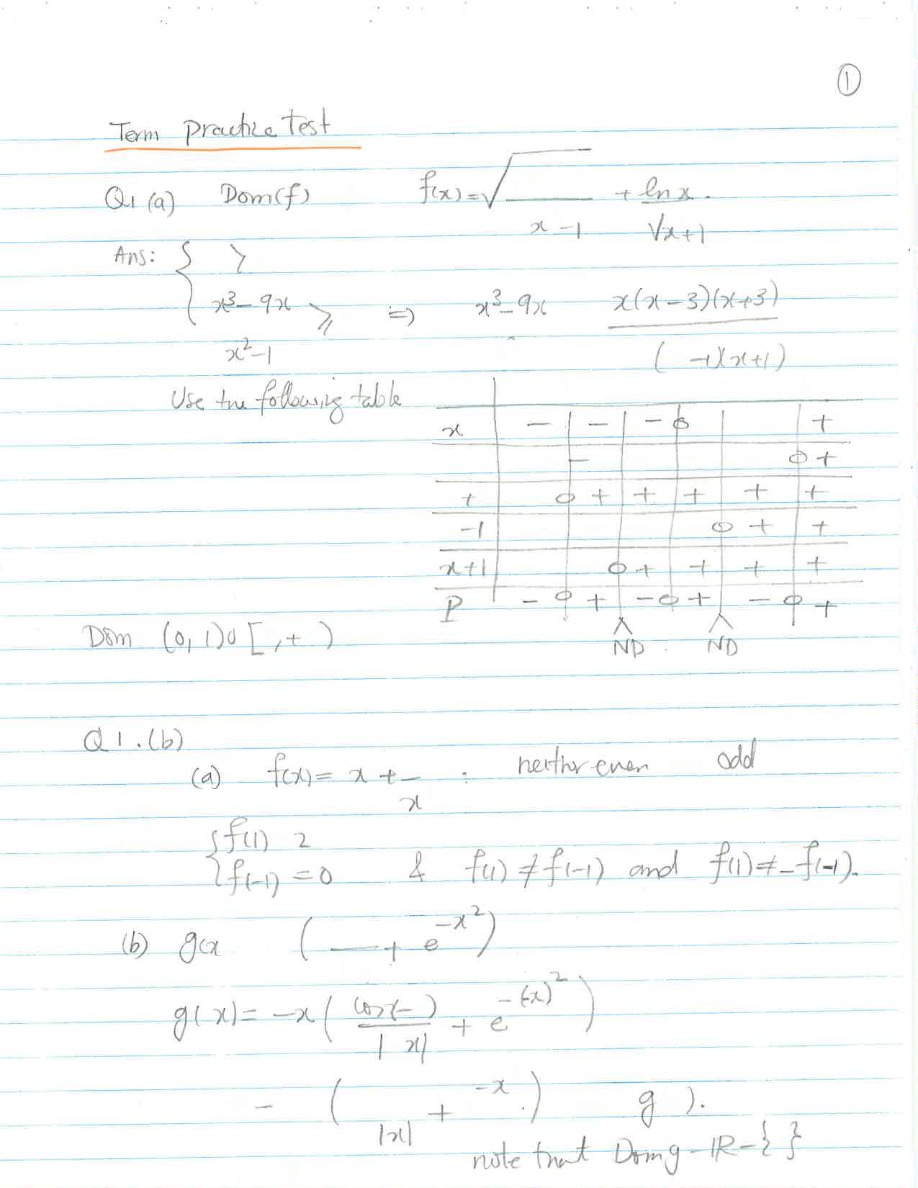 ①
Term practice test
Q1 (a) Dom(f) f(x)=√ + ln x
x -1 √x+1
Ans: { >
x³-9x ≥ ⇒ x³-9x x(x-3)(x+3)
x²-1 ( -1)(x+1)
Use the following table
x - - - 0 +
- 0 +
+ 0 + + + + +
-1 0 + +
x+1 0 + + + +
P - 0 + - 0 + - 0 +
ND ND
Dom (0,1)∪[ ,+ )
Q1.(b)
(a) f(x)= x + — : neither even odd
x
{f(1) 2
{f(-1) =0 & f(1)≠f(-1) and f(1)≠-f(-1).
(b) g(x ( — + e^-x²)
g( x)= -x( cos(- ) + e^-(-x)²)
| x|
- ( + -x ) g ).
|x|
note that Dom g - ℝ-{ }